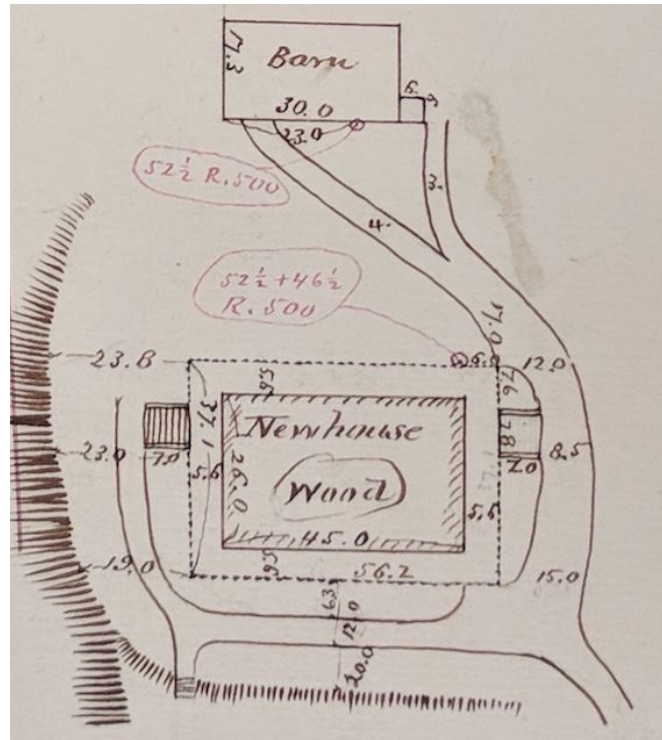 Barn
17.3
30.0
6.
23.0
52 ½ R. 500
3.
4.
52 ½ + 46 ½
R. 500
17.0
23.8
6.0
12.0
5.6
7.6
37.1
Newhouse
7.8
23.0
7.0
5.6
26.0
Wood
7.0
8.5
5.5
45.0
19.0
5.6
56.2
15.0
6.3
12.0
20.0